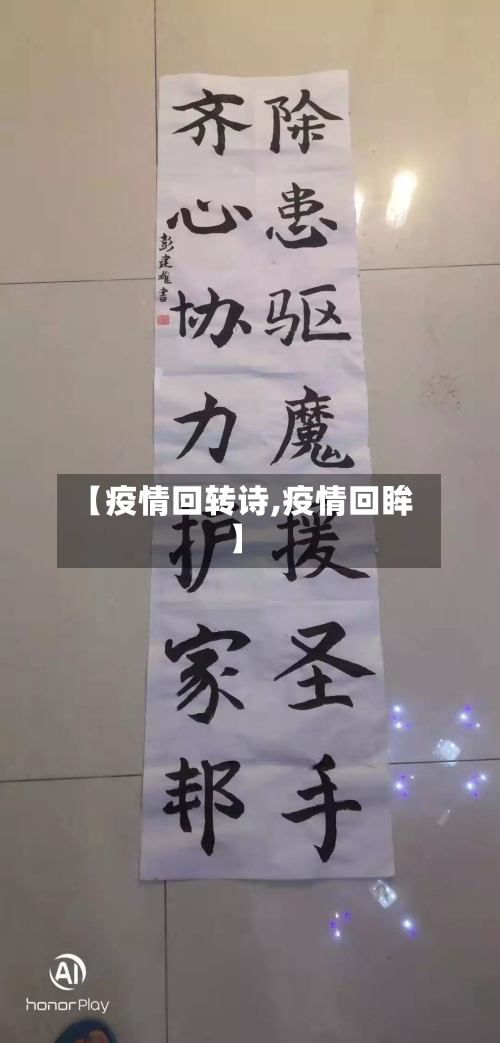 除患驱魔援圣手
齐心协力护家邦
彭建雄书
【疫情回转诗,疫情回眸
】
AI
honorPlay